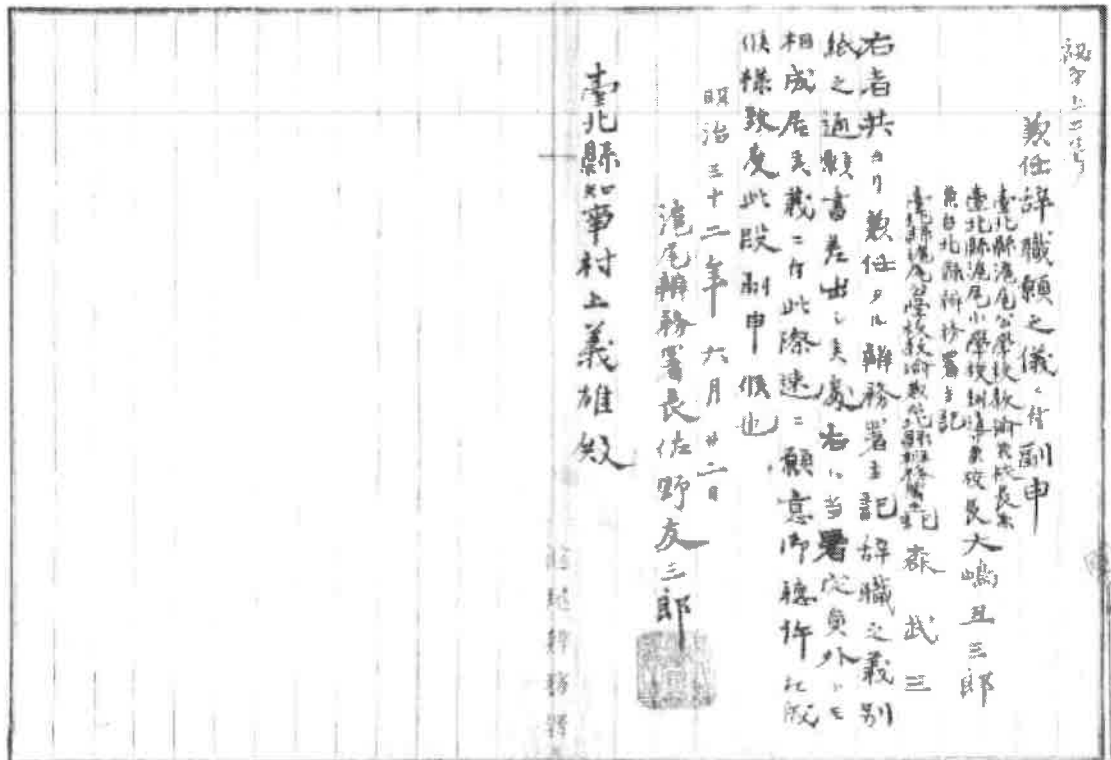 兼任辞職願之儀ニ付副申
臺北縣滬尾公學校教諭兼校長兼
臺北縣滬尾小學校訓導兼校長 大嶋丑三郎
兼台北縣辨務署主記
臺北縣滬尾公學校教諭兼臺北縣辨務署主記 森武三
右者共ヨリ兼任タル辨務署主記辞職之義別
紙之通願書差出シ候處右ハ当署定員外ニモ
相成居候義ニ付此際速ニ願意御聴許相成
候様致度此段副申候也
明治三十二年六月廿二日
滬尾辨務署長佐野友三郎
臺北縣知事村上義雄殿
滬尾辨務署